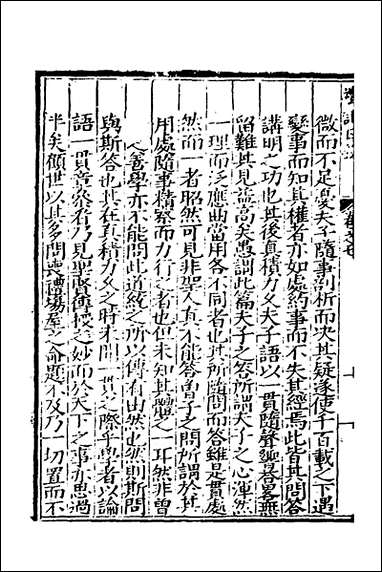 微而不足憂夫子隨事剖析而決其疑遂使千百載之下遇
變事而知其權者亦如處約事而不失其經焉此皆其問答
講明之功也其後真積力久夫子語以一貫隨聲唯畧無
留難其見益高矣愚謂此篇夫子之答所謂夫子之心渾然
一理而泛應曲當用各不同者也其所隨問而答雖是貫處
然而一者昭然可見非聖人真不能答曾子之問所謂於其
用處隨事精察而力行之者也但未知其體之一耳然非曾
之善學亦不能問此道統之所以傳有由然也然則斯問
與斯答也其在真積力久之時未聞一貫之際乎學者以論
語一貫章叅看乃見聖賢傳授之妙而於天下之事亦思過
半矣顧世以其多問喪禮場屋之命題不及乃一切置而不